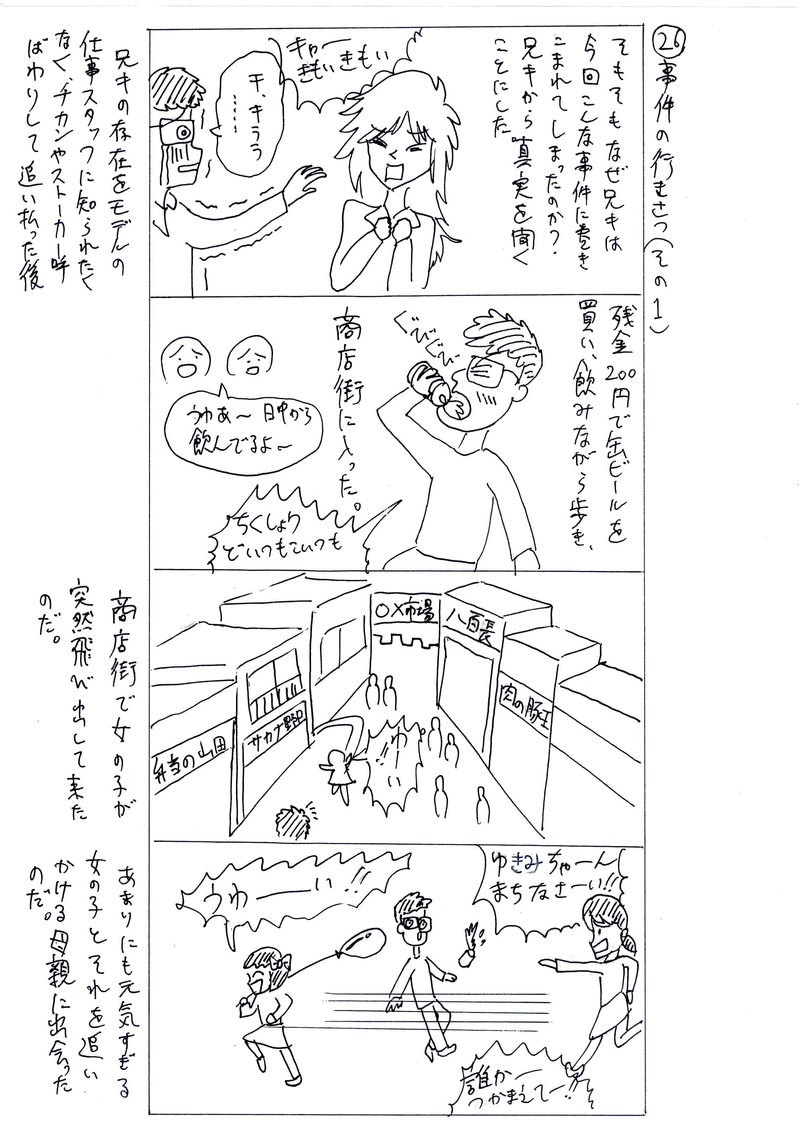 ㉖事件の行きさつ(その1)
そもそもなぜ兄キは
今回こんな事件に巻き
こまれてしまったのか?
兄キから真実を聞く
ことにした
キャー
きもいきもい
干、キララ
……
兄キの存在をモデルの
仕事スタッフに知られたく
なく、チカンやストーカー呼
ばわりして追い払った後
残金200円で缶ビールを
買い、飲みながら歩き、
商店街に入った。
ぐびぐび
うわあ～日中から
飲んでるよ～
ちくしょう
どいつもこいつも
○×市場
八百長
肉の豚王
サカナ野郎
弁当の山田
わーい!!
商店街で女の子が
突然飛び出して来た
のだ。
ゆきみちゃーん
まちなさーい!!
うわーーい!!
誰かー
つかまえてー!!
あまりにも元気すぎる
女の子とそれを追い
かける母親に出会った
のだ。